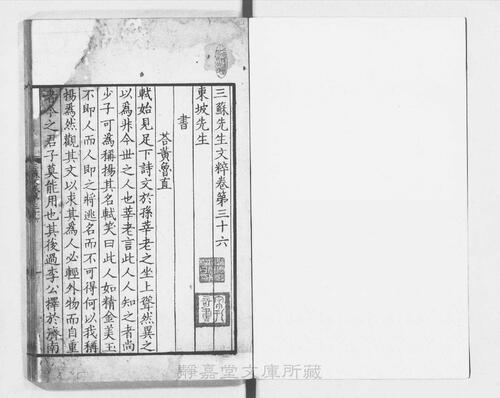 三蘇先生文粹卷第三十六
東坡先生
書
荅黃魯直
軾始見足下詩文於孫莘老之坐上聳然異之
以爲非今世之人也莘老言此人人知之者尚
少子可爲稱揚其名軾笑曰此人如精金美玉
不即人而人即之將逃名而不可得何以我稱
揚爲然觀其文以求其爲人必輕外物而自重
者今之君子莫能用也其後過李公擇於濟南
靜嘉堂文庫所藏